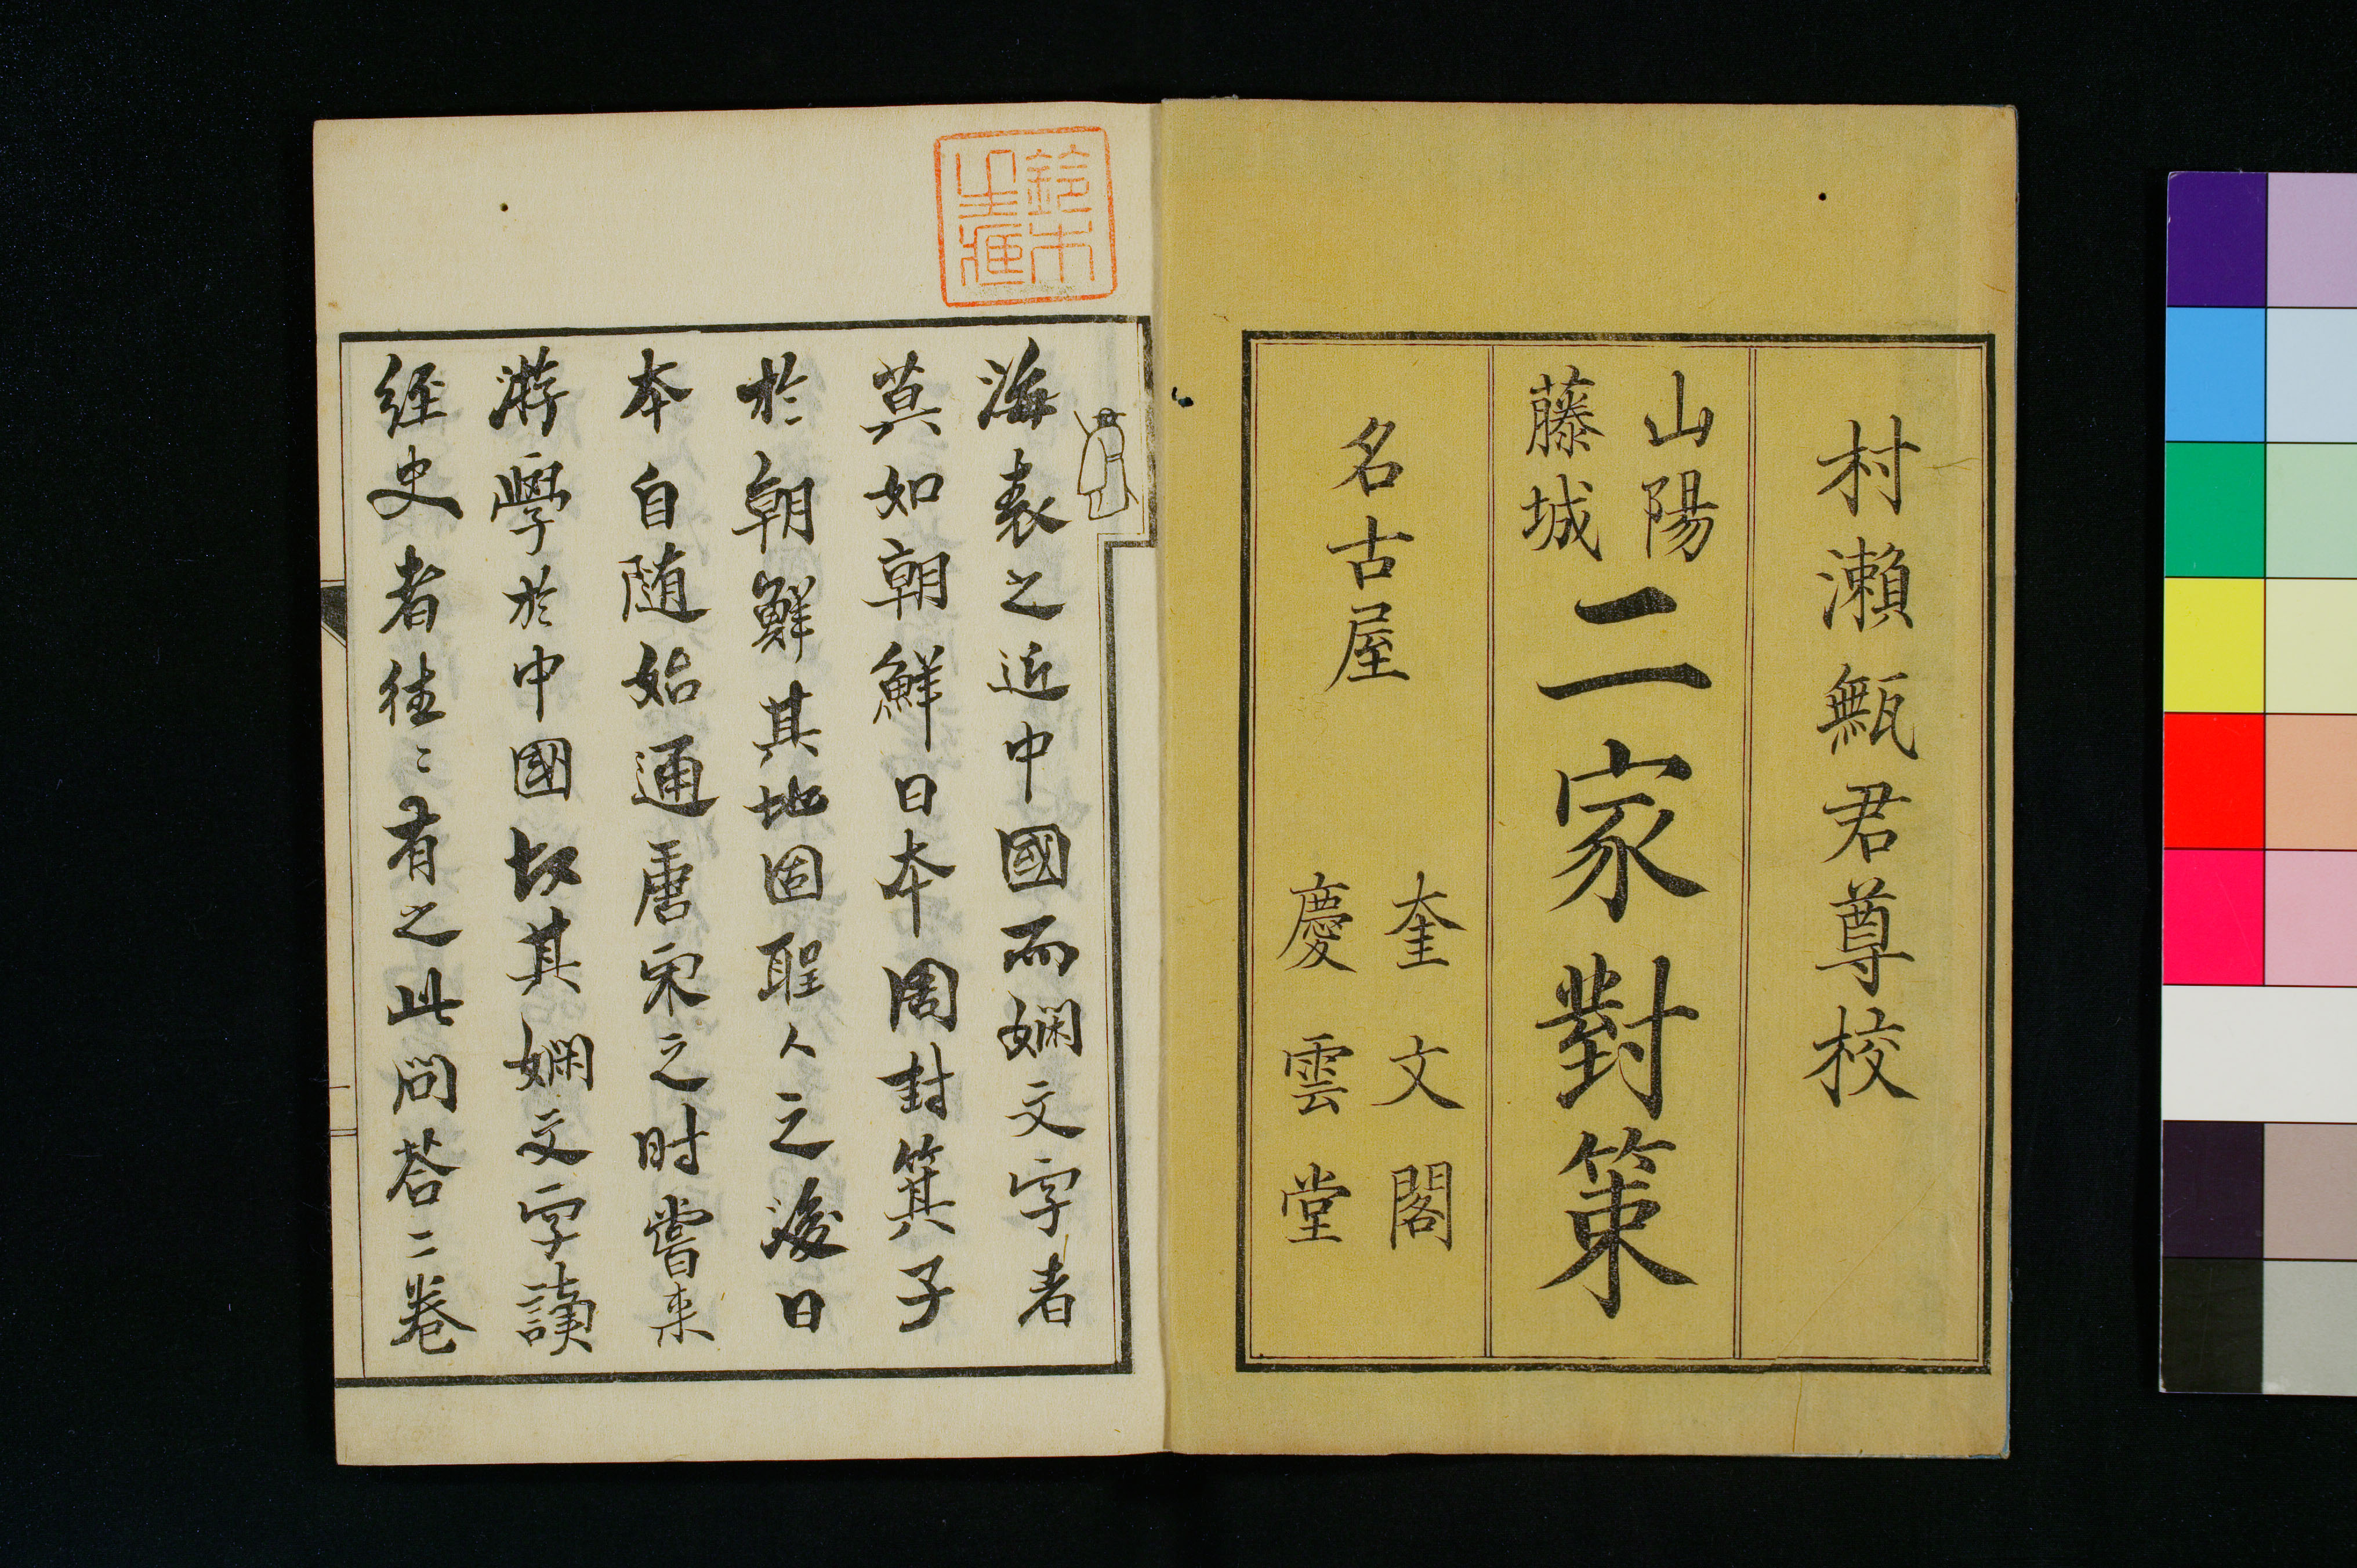 村瀬甒君尊校
山陽
藤城
二家對策
名古屋
奎文閣
慶雲堂
鈴木
之印
海表之近中國而嫻文字者
莫如朝鮮日本周封箕子
於朝鮮其地固聖人之後日
本自隨始通唐宋之时嘗来
游學於中國故其嫻文字讀
經史者往〻有之此問荅二卷